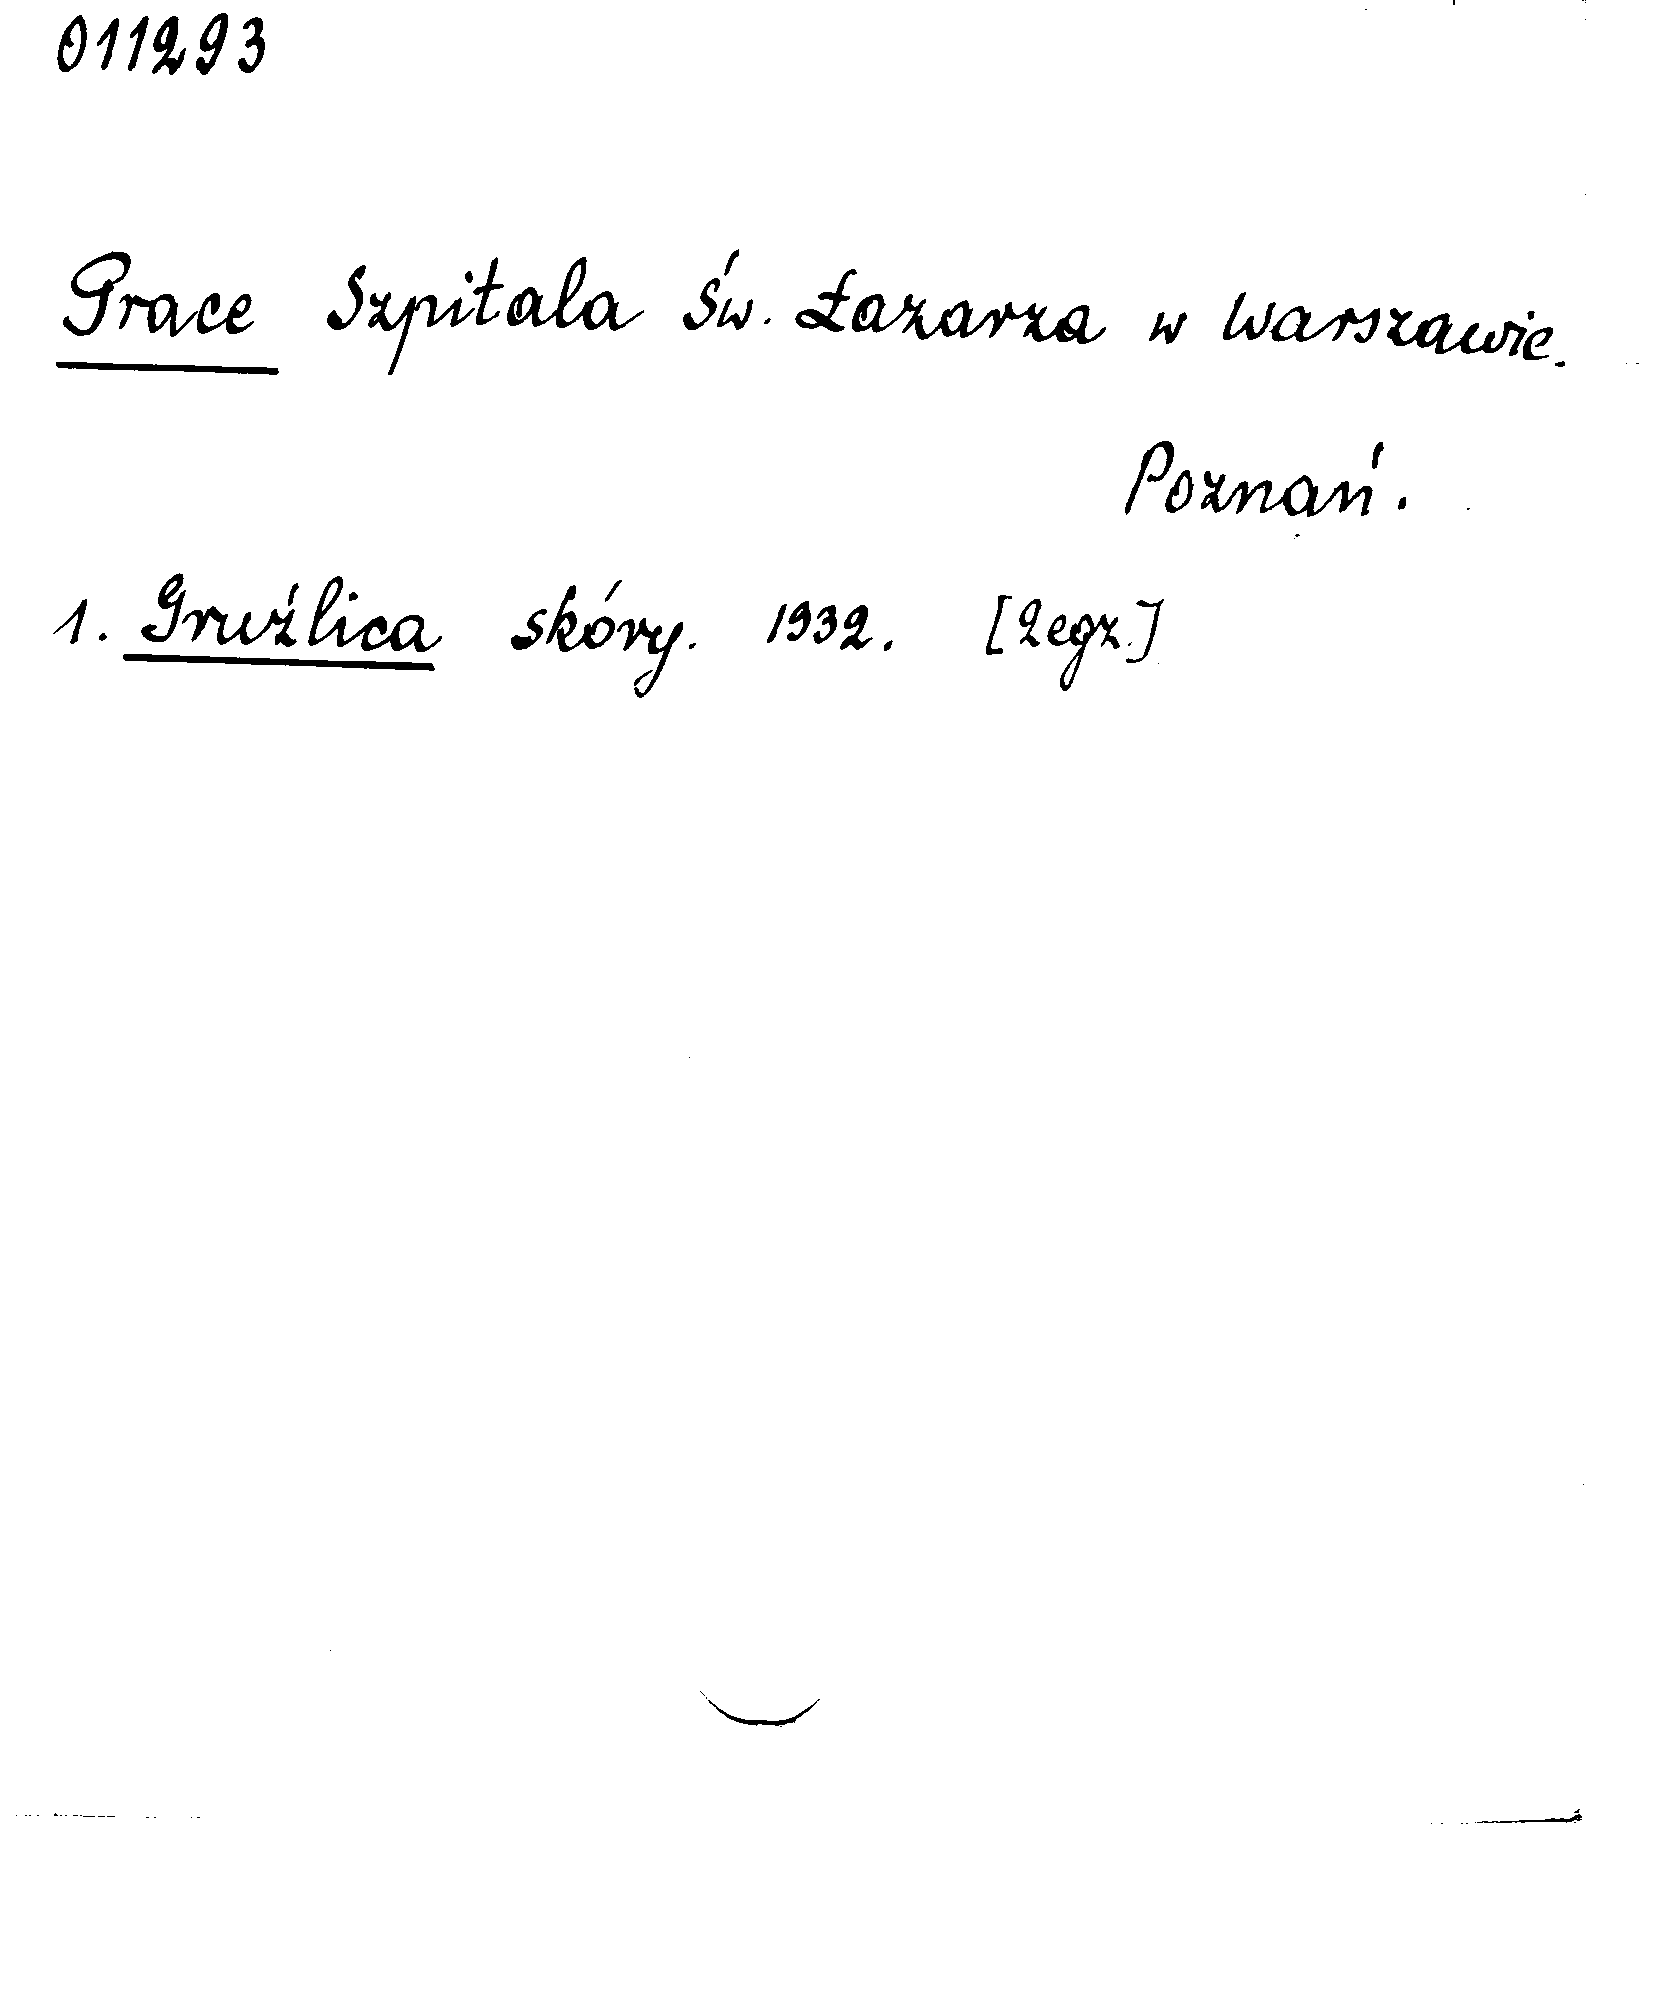 011293
Prace Szpitala Św. Łazarza w Warszawie.
Poznań.
1. Gruźlica skóry. 1932. [2egz.]